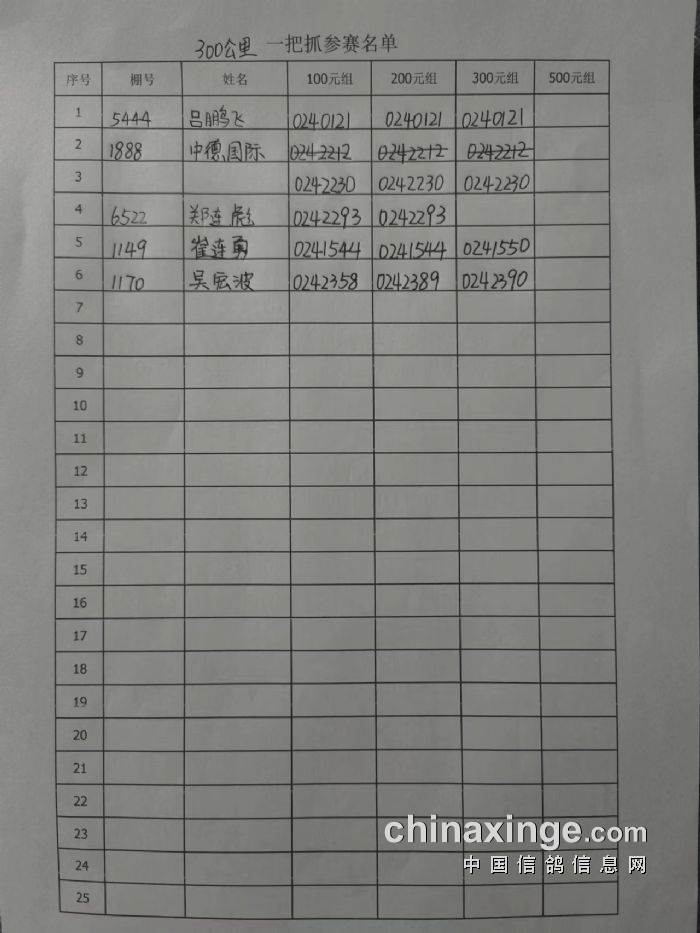 300公里 一把抓参赛名单
序号 棚号 姓名 100元组 200元组 300元组 500元组
1 5444 吕鹏飞 0240121 0240121 0240121
2 1888 中德国际 0242212 0242212 0242212
3 0242230 0242230 0242230
4 6522 郑连彪 0242293 0242293
5 1149 崔连勇 0241544 0241544 0241550
6 1170 吴宏波 0242358 0242389 0242390
7
8
9
10
11
12
13
14
15
16
17
18
19
20
21
22
23
24
25
chinaxinge.com
中国信鸽信息网